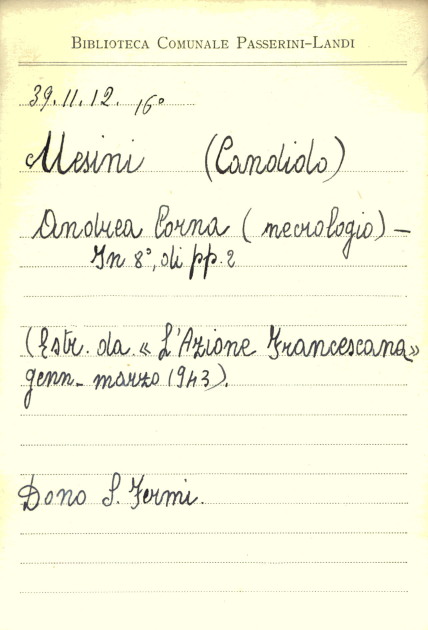 BIBLIOTECA COMUNALE PASSERINI-LANDI
39.11.12. 16°
Mesini (Candido)
Andrea Corna (necrologio) —
In 8°, di pp. 2
(Estr. da « L'Azione Francescana»
genn- marzo 1943).
Dono S. Fermi.